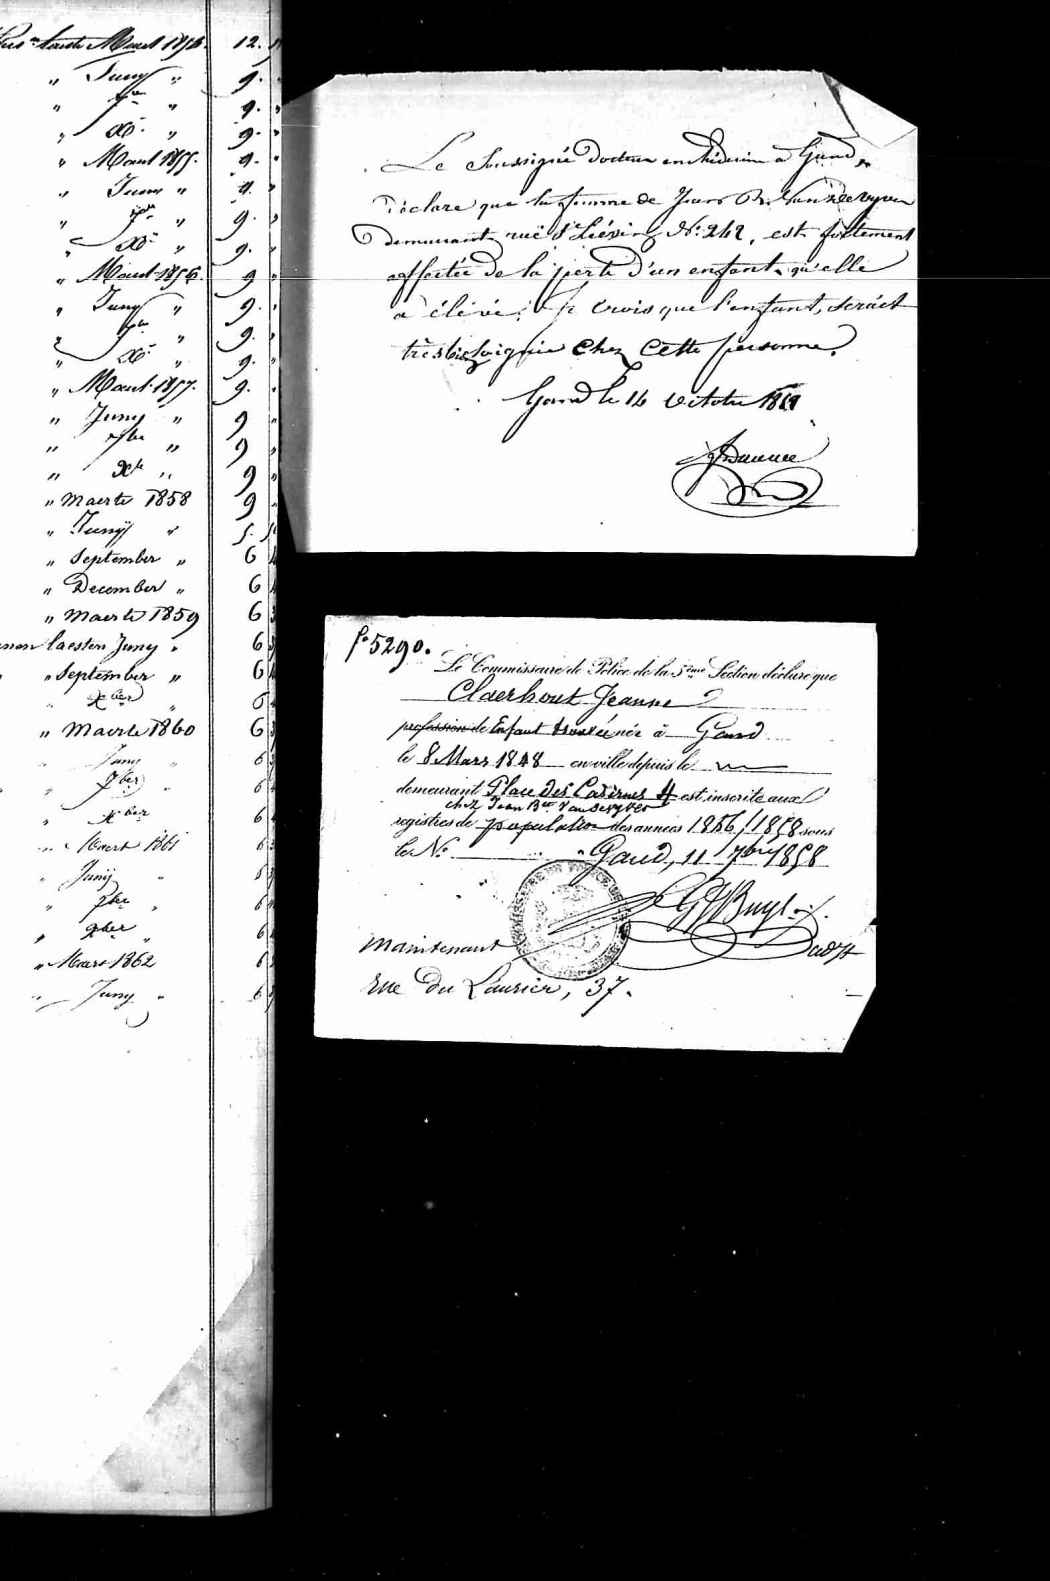 laeste Maert 1854. 12.
" Juny " 9.
" 7bre " 9.
" Xb. " 9.
" Maert 1855. 9.
" Juny " 9.
" 7bre " 9.
" Xbr " 9.
" Maert 1856. 9
" Juny " 9.
" 7bre " 9.
" Xbr " 9.
" Maert 1857. 9.
" Juny " 9
" 7bre " 9
" Xbr " 9
" Maerte 1858 9
" Junij " 5.
" September " 6
" December " 6
" Maerte 1859 6
laesten Juny " 6
" September " 6
" Xber 6
" Maerte 1860 6
" Juny " 6
" 7ber " 6
" Xber 6
" Maert 1861 6
" Junij " 5
" 7ber " 6
" Xber " 6
" Maert 1862 6
" Juny " 6
Le Soussigné Docteur en Médecine à Gand,
Déclare que la femme de Jean B. Vandevyver
Demeurant rue St Liévin No. 242, est fortement
affectée de la perte d'un enfant qu'elle
a élévé; Je crois que l'enfant, serait
très bien soignée chez cette personne.
Gand le 14 Octobre
fo 5290.
Le Commissaire de Police de la 5me Section déclare que
Claerhout Jeanne
profession de Enfant trouvée née à Gand
le 8 Mars 1848 en ville depuis le
demeurant Place des Casernes 4 est inscrite aux
chez Jean Bte Vandevyver
registres de population des années 1856/1858 sous
le No. Gand, 11 7bre 1858
G Buyl
Maintenant
rue Du Laurier, 37.